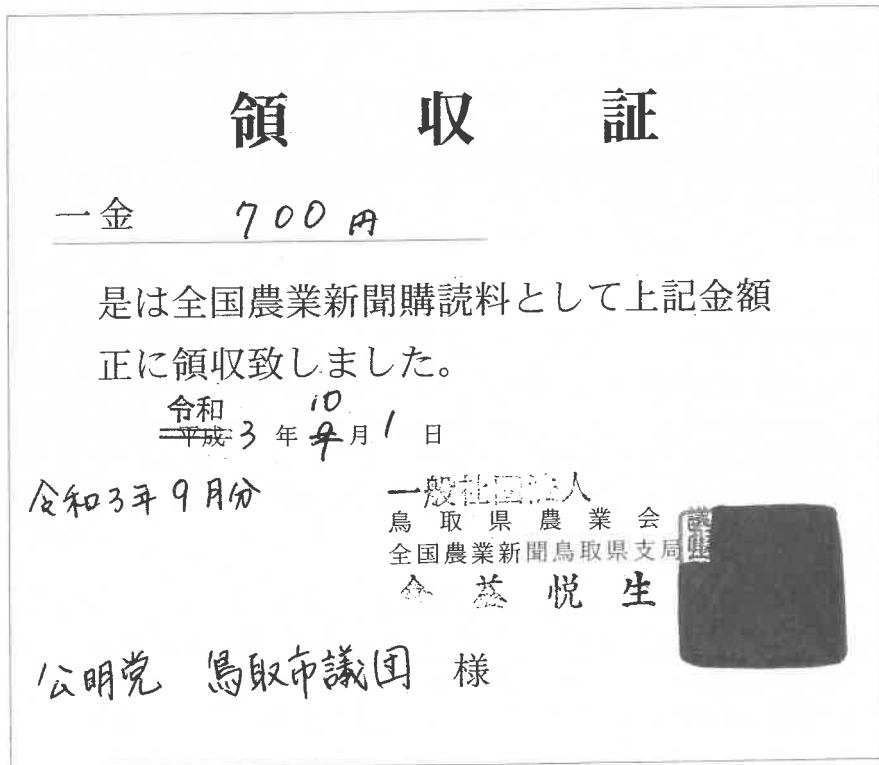 領収証
一金 700円
是は全国農業新聞購読料として上記金額
正に領収致しました。
令和 10
平成 3年 9月1日
令和3年9月分
一般社団法人
鳥取県農業会議
全国農業新聞鳥取県支局
悦生
公明党 鳥取市議団 様